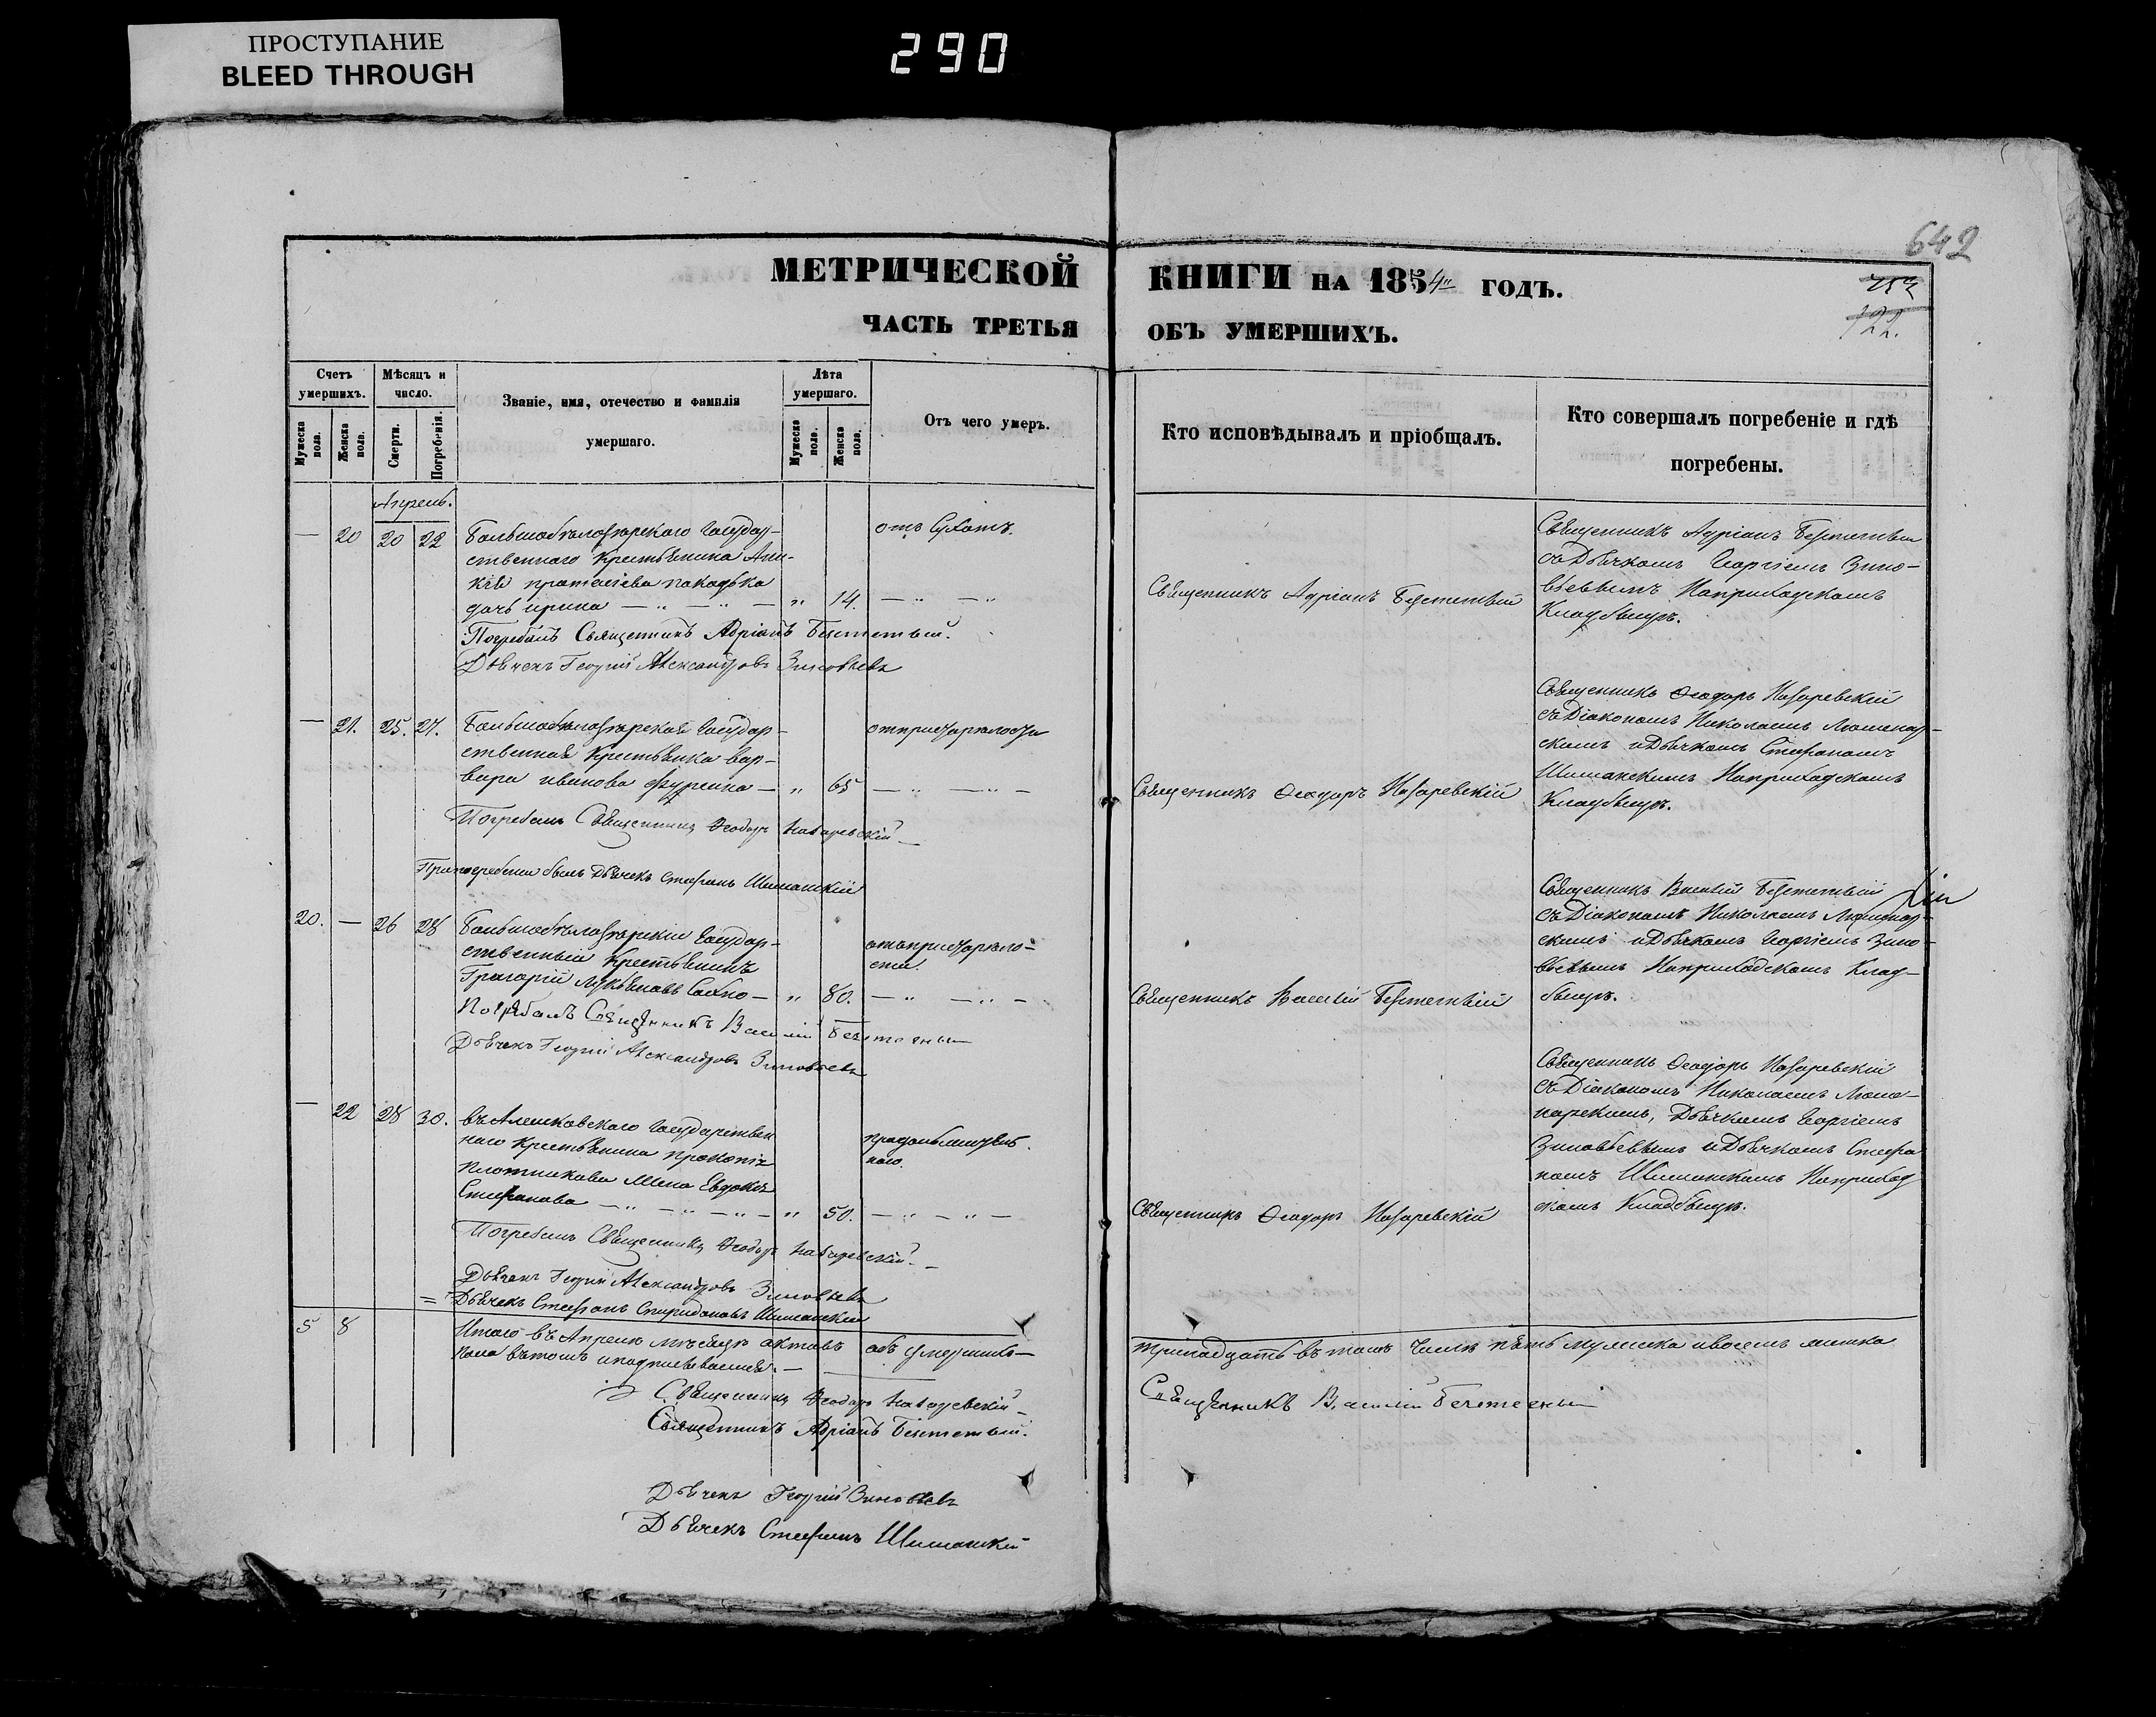 ПРОСТУПАНИЕ
BLEED THROUGH
290
642
МЕТРИЧЕСКОЙ КНИГИ НА 1854 ГОДЪ.
122.
ЧАСТЬ ТРЕТЬЯ ОБЪ УМЕРШИХЪ.
Счетъ умершихъ.
Мужеска пола.
Женска пола.
Мѣсяцъ и число.
Смерти.
Погребенія.
Званіе, имя, отечество и фамилія умершаго.
Лѣта умершаго.
Мужеска пола.
Женска пола.
Отъ чего умеръ.
Кто исповѣдывалъ и пріобщалъ.
Кто совершалъ погребеніе и гдѣ погребены.
Апрель.
— 20 20 22
Большебѣлозерскаго Государ-
ственнаго Крестьянина
дочь Ирина — „ — „ — „ 14. — „ — „
Священникъ Адріанъ
съ Дьячкомъ Георгіемъ Зино-
вьевымъ Наприходскомъ
Кладбищѣ.
Погребалъ Священникъ Адріанъ
Дьячекъ Георгій Александровъ Зиновьевъ
— 21. 25. 27.
Большебѣлозерская Государ-
ственная Крестьянка Вар-
вара Иванова — „ 65 — „ — „ —
отпристарѣлости
Священникъ Ѳеодоръ Назаревскій
Священникъ Ѳеодоръ Назаревскій
съ Діакономъ Николаемъ
скимъ и Дьячкомъ Стефаномъ
Шиманскимъ Наприходскомъ
Кладбищѣ.
Погребалъ Священникъ Ѳеодоръ Назаревскій
Припогребении былъ Дьячекъ Стефанъ Шиманскій
20. — 26 28
Большебѣлозерскій Государ-
ственный Крестьянинъ
Григорій Лукьяновъ Сахно — „ 80. — „ — „ —
отъпристарѣло-
сти.
Священникъ Василій
Священникъ Василій
съ Діакономъ Николаемъ
скимъ и Дьячкомъ Георгіемъ Зино-
вьевымъ Наприходскомъ Клад-
бищѣ.
Погребалъ Священникъ Василій
Дьячекъ Георгій Александровъ Зиновьевъ
— 22 28 30.
Государствен
наго Крестьянина Прокопія
Плотникова жена Евдокія
Стефанова — „ — „ — „ — „ 50. — „ — „ —
Священникъ Ѳеодоръ Назаревскій
Священникъ Ѳеодоръ Назаревскій
съ Діакономъ Николаемъ
Дьячкомъ Георгіемъ
Зиновьевымъ и Дьячкомъ Стефа
номъ Шиманскимъ Наприход
скомъ Кладбищѣ.
Погребалъ Священникъ Ѳеодоръ Назаревскій
Дьячекъ Георгій Александровъ Зиновьевъ
Дьячекъ Стефанъ Спиридоновъ Шиманскій
5 8
Итого въ Апрелѣ мѣсяцѣ актовъ объ умершихъ —
тринадцать въ томъ числѣ пять мужеска и восемь женска
пола вътомъ иподписываемся. —
Священникъ Ѳеодоръ Назаревскій
Священникъ Адріанъ
Священникъ Василій
Дьячекъ Георгій Зиновьевъ
Дьячекъ Стефанъ Шиманскій